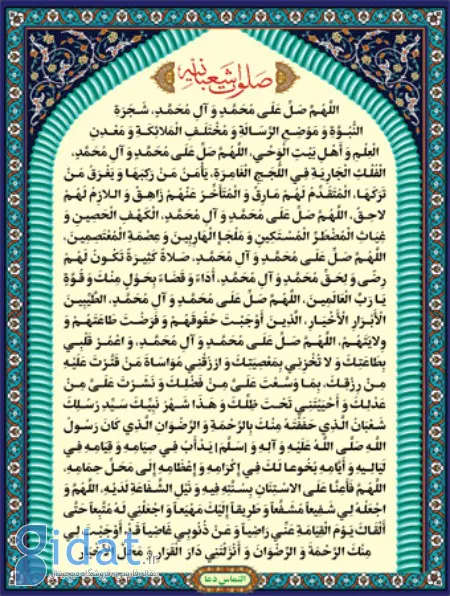 صلوات شعبانیه
اللَّهُمَّ صَلِّ عَلَى مُحَمَّدٍ وَ آلِ مُحَمَّدٍ، شَجَرَةِ
النُّبُوَّةِ وَ مَوْضِعِ الرِّسَالَةِ وَ مُخْتَلَفِ الْمَلَائِكَةِ وَ مَعْدِنِ
الْعِلْمِ وَ أَهْلِ بَيْتِ الْوَحْيِ، اللَّهُمَّ صَلِّ عَلَى مُحَمَّدٍ وَ آلِ مُحَمَّدٍ،
الْفُلْكِ الْجَارِيَةِ فِي اللُّجَجِ الْغَامِرَةِ، يَأْمَنُ مَنْ رَكِبَهَا وَ يَغْرَقُ مَنْ
تَرَكَهَا، الْمُتَقَدِّمُ لَهُمْ مَارِقٌ وَ الْمُتَأَخِّرُ عَنْهُمْ زَاهِقٌ وَ اللازِمُ لَهُمْ
لاحِقٌ، اللَّهُمَّ صَلِّ عَلَى مُحَمَّدٍ وَ آلِ مُحَمَّدٍ، الْكَهْفِ الْحَصِينِ وَ
غِيَاثِ الْمُضْطَرِّ الْمُسْتَكِينِ وَ مَلْجَإِ الْهَارِبِينَ وَ عِصْمَةِ الْمُعْتَصِمِينَ،
اللَّهُمَّ صَلِّ عَلَى مُحَمَّدٍ وَ آلِ مُحَمَّدٍ، صَلاةً كَثِيرَةً تَكُونُ لَهُمْ
رِضًى وَ لِحَقِّ مُحَمَّدٍ وَ آلِ مُحَمَّدٍ، أَدَاءً وَ قَضَاءً بِحَوْلٍ مِنْكَ وَ قُوَّةٍ
يَا رَبَّ الْعَالَمِينَ، اللَّهُمَّ صَلِّ عَلَى مُحَمَّدٍ وَ آلِ مُحَمَّدٍ، الطَّيِّبِينَ
الْأَبْرَارِ الْأَخْيَارِ، الَّذِينَ أَوْجَبْتَ حُقُوقَهُمْ وَ فَرَضْتَ طَاعَتَهُمْ وَ
وِلايَتَهُمْ، اللَّهُمَّ صَلِّ عَلَى مُحَمَّدٍ وَ آلِ مُحَمَّدٍ، وَ اعْمُرْ قَلْبِي
بِطَاعَتِكَ وَ لا تُخْزِنِي بِمَعْصِيَتِكَ وَ ارْزُقْنِي مُوَاسَاةَ مَنْ قَتَّرْتَ عَلَيْهِ
مِنْ رِزْقِكَ، بِمَا وَسَّعْتَ عَلَيَّ مِنْ فَضْلِكَ وَ نَشَرْتَ عَلَيَّ مِنْ
عَدْلِكَ وَ أَحْيَيْتَنِي تَحْتَ ظِلِّكَ وَ هَذَا شَهْرُ نَبِيِّكَ سَيِّدِ رُسُلِكَ
شَعْبَانُ الَّذِي حَفَفْتَهُ مِنْكَ بِالرَّحْمَةِ وَ الرِّضْوَانِ الَّذِي كَانَ رَسُولُ
اللَّهِ صَلَّى اللَّهُ عَلَيْهِ وَ آلِهِ وَ [سَلَّمَ] يَدْأَبُ فِي صِيَامِهِ وَ قِيَامِهِ فِي
لَيَالِيهِ وَ أَيَّامِهِ بُخُوعا لَكَ فِي إِكْرَامِهِ وَ إِعْظَامِهِ إِلَى مَحَلِّ حِمَامِهِ،
اللَّهُمَّ فَأَعِنَّا عَلَى الاسْتِنَانِ بِسُنَّتِهِ فِيهِ وَ نَيْلِ الشَّفَاعَةِ لَدَيْهِ، اللَّهُمَّ وَ
اجْعَلْهُ لِي شَفِيعاً مُشَفَّعاً وَ طَرِيقاً إِلَيْكَ مَهْيَعاً وَ اجْعَلْنِي لَهُ مُتَّبِعاً حَتَّى
أَلْقَاكَ يَوْمَ الْقِيَامَةِ عَنِّي رَاضِياً وَ عَنْ ذُنُوبِي غَاضِياً قَدْ أَوْجَبْتَ لِي
مِنْكَ الرَّحْمَةَ وَ الرِّضْوَانَ وَ أَنْزَلْتَنِي دَارَ الْقَرَارِ وَ مَحَلَّ الْأَخْيَارِ
التماس دعا
gidat.ir